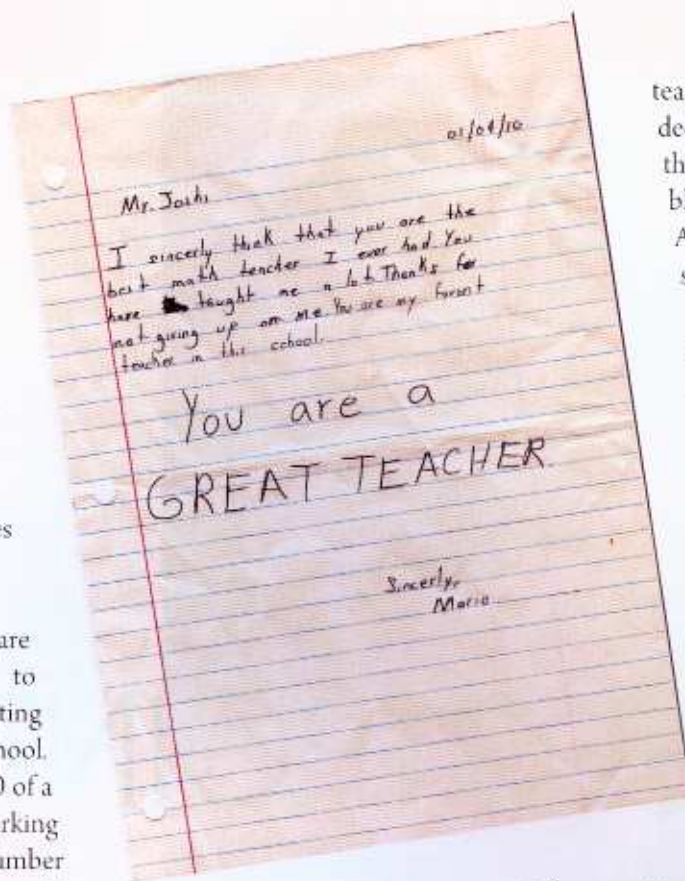 01/04/10
Mr. Joshi
I sincerly think that you are the
best math teacher I ever had. You
have taught me a lot. Thanks for
not giving up on me. You are my favorit
teacher in this school.
You are a
GREAT TEACHER.
Sincerly,
Maria
tea
dec
th
bl
A
s
es
are
to
ting
hool.
0 of a
rking
umber